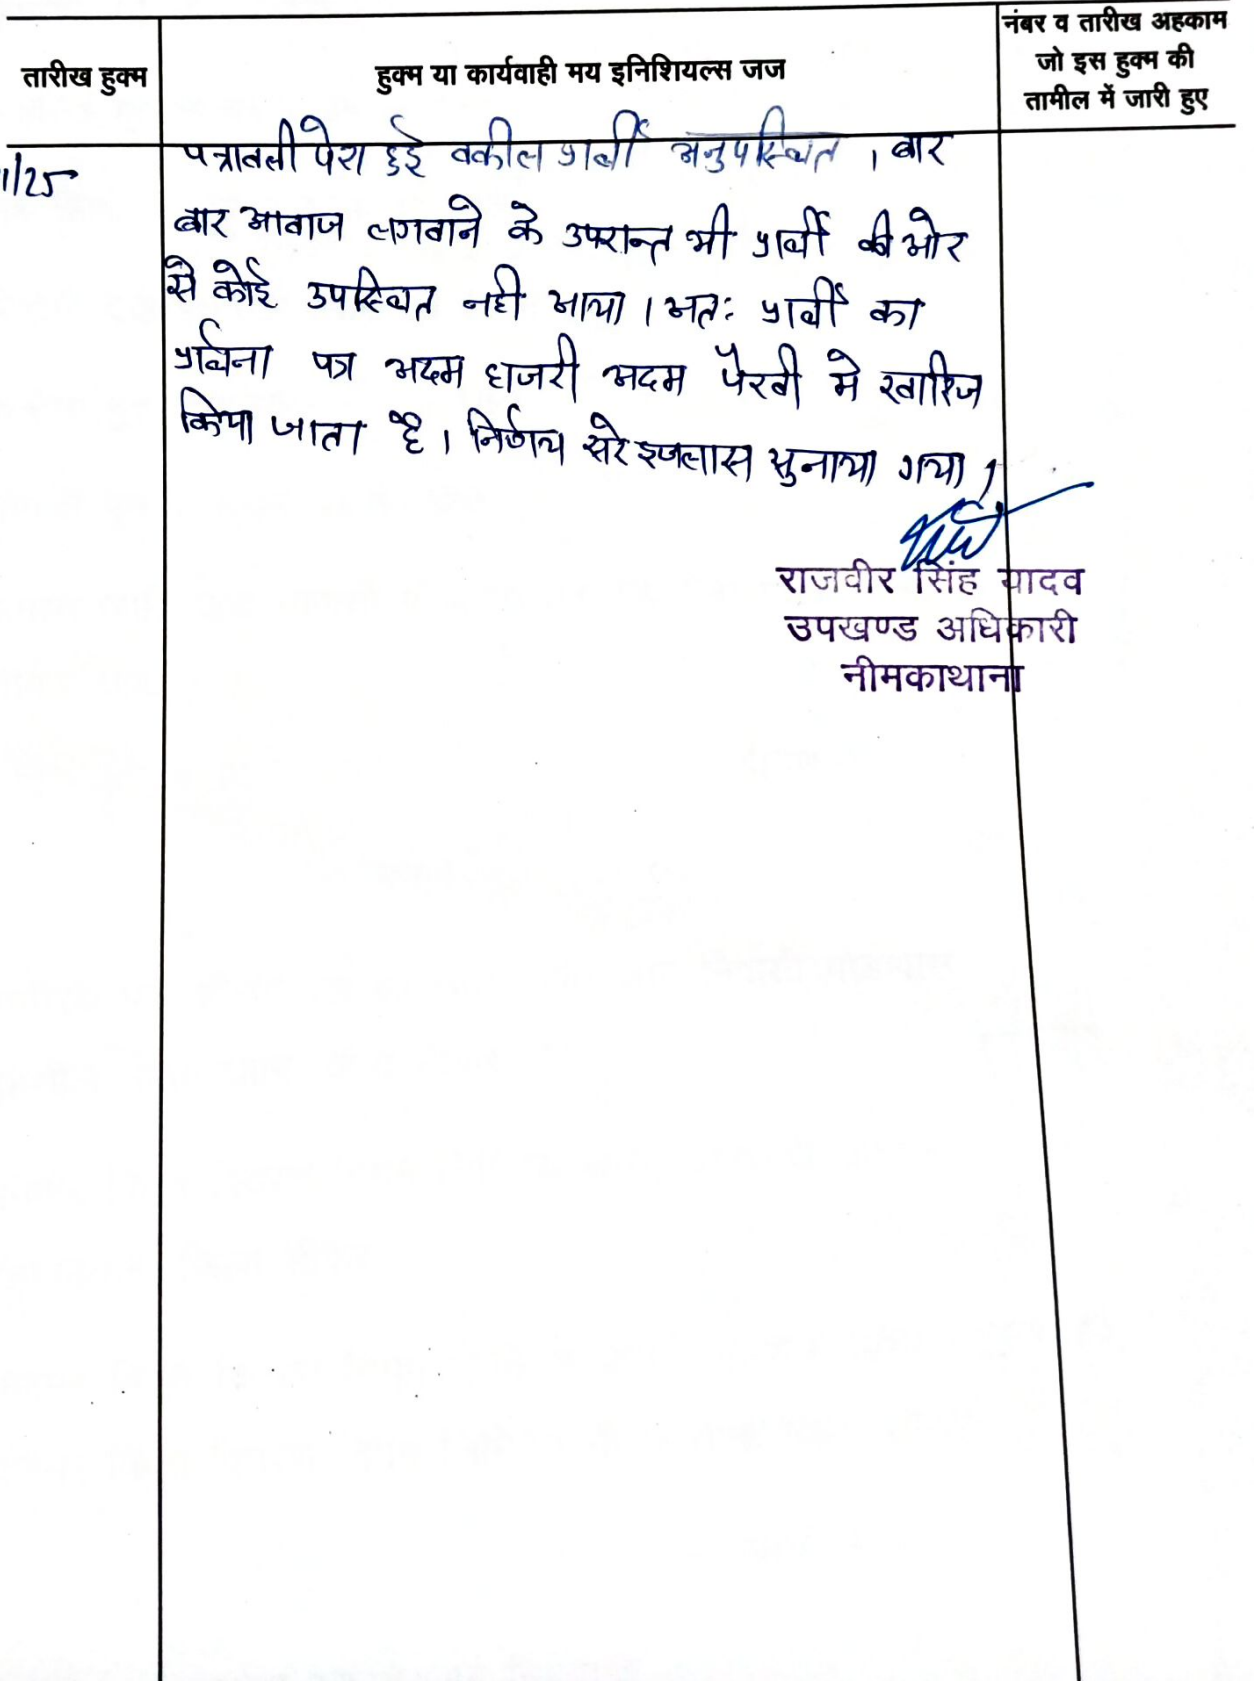 तारीख हुक्म
हुक्म या कार्यवाही मय इनिशियल्स जज
नंबर व तारीख अहकाम
जो इस हुक्म की
तामील में जारी हुए
1/25
पत्रावली पेश हुई वकील प्रार्थी अनुपस्थित । बार
बार आवाज लगवाने के उपरान्त भी प्रार्थी की ओर
से कोई उपस्थित नही आया । अतः प्रार्थी का
प्रार्थना पत्र अदम हाजरी अदम पैरवी मे खारिज
किया जाता है । निर्णय सरे इजलास सुनाया गया ।
राजवीर सिंह यादव
उपखण्ड अधिकारी
नीमकाथाना